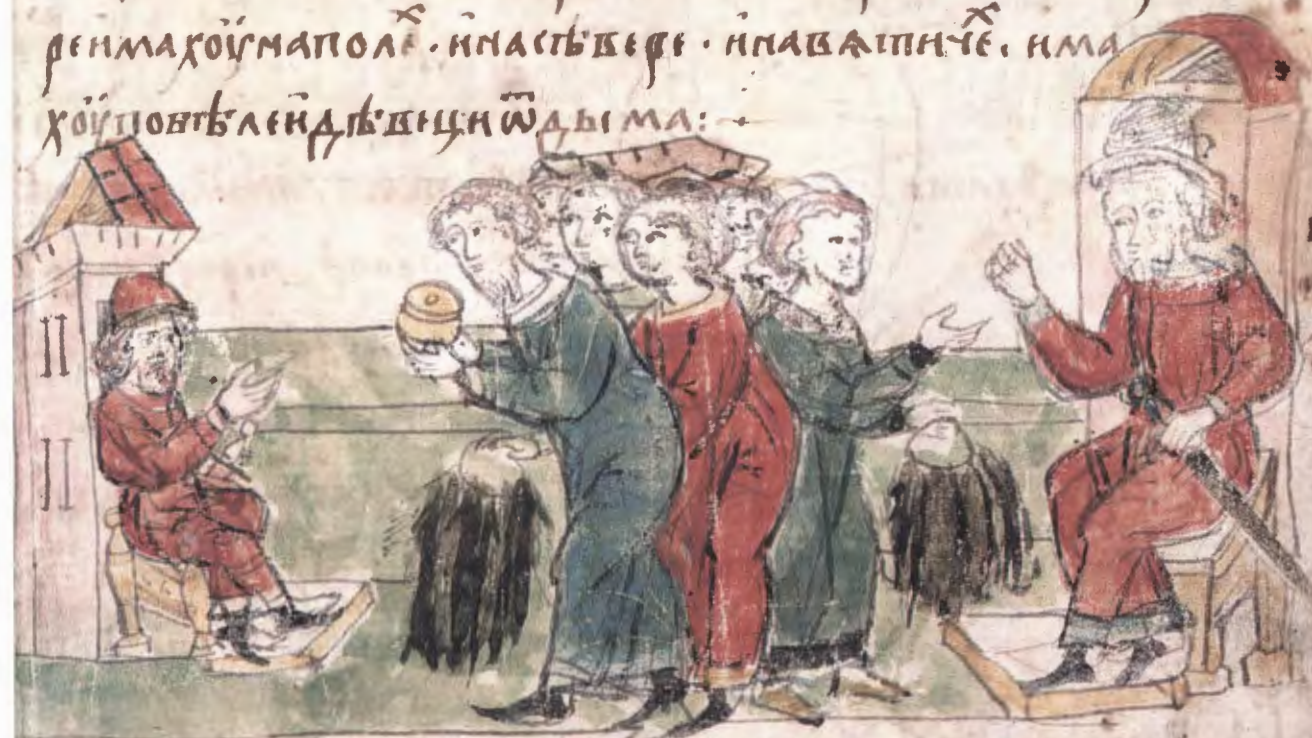 ренимахоу на полѧⷯ · и на сѣвере · и на вѧтичеⷯ · има
хоу по бѣлеи дѣвеци ѿ дыма :·